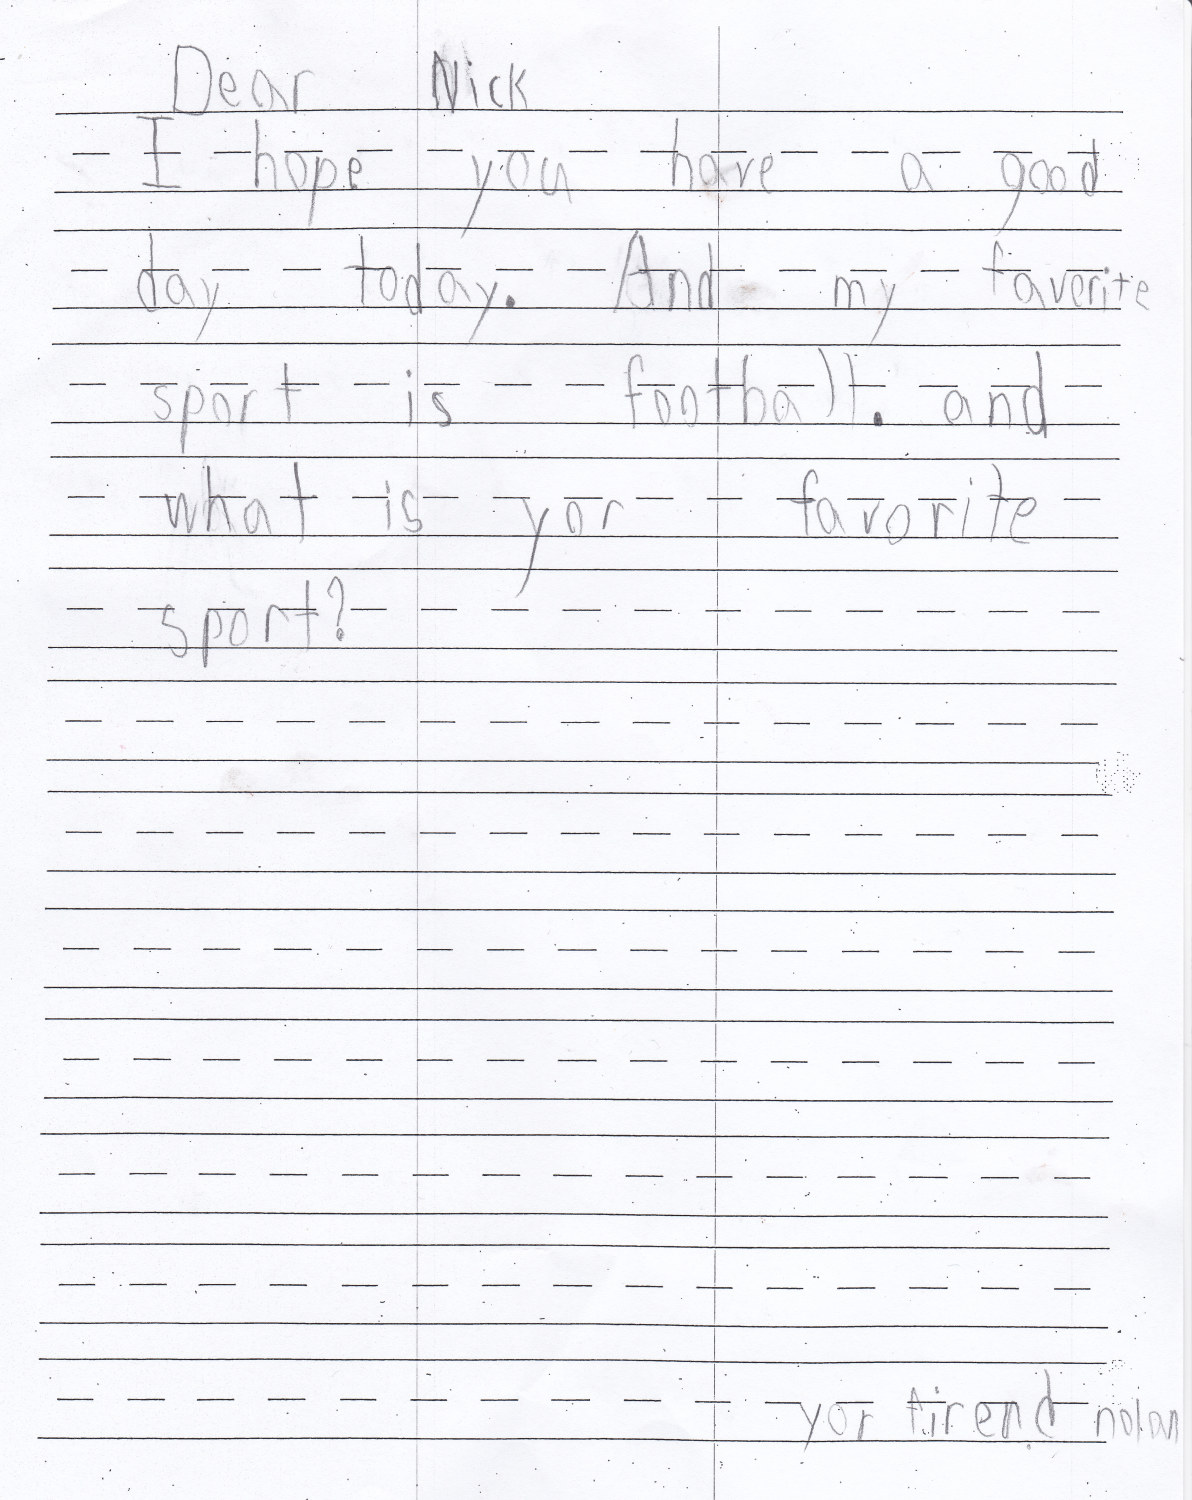 Dear Nick
I hope you have a good
day today. And my faverite
sport is football. and
what is yor favorite
sport?
yor firend nolan